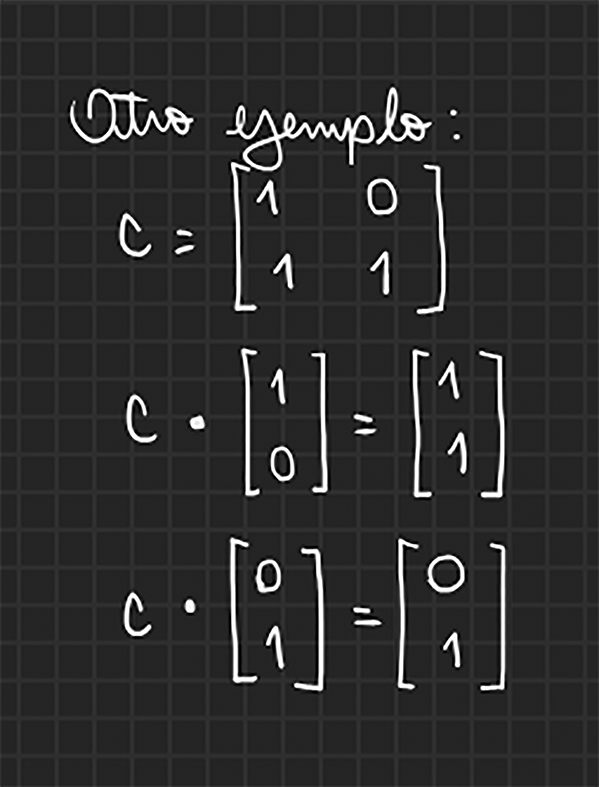 Otro ejemplo:
C = [1 0
1 1]
C · [1
0] = [1
1]
C · [0
1] = [0
1]